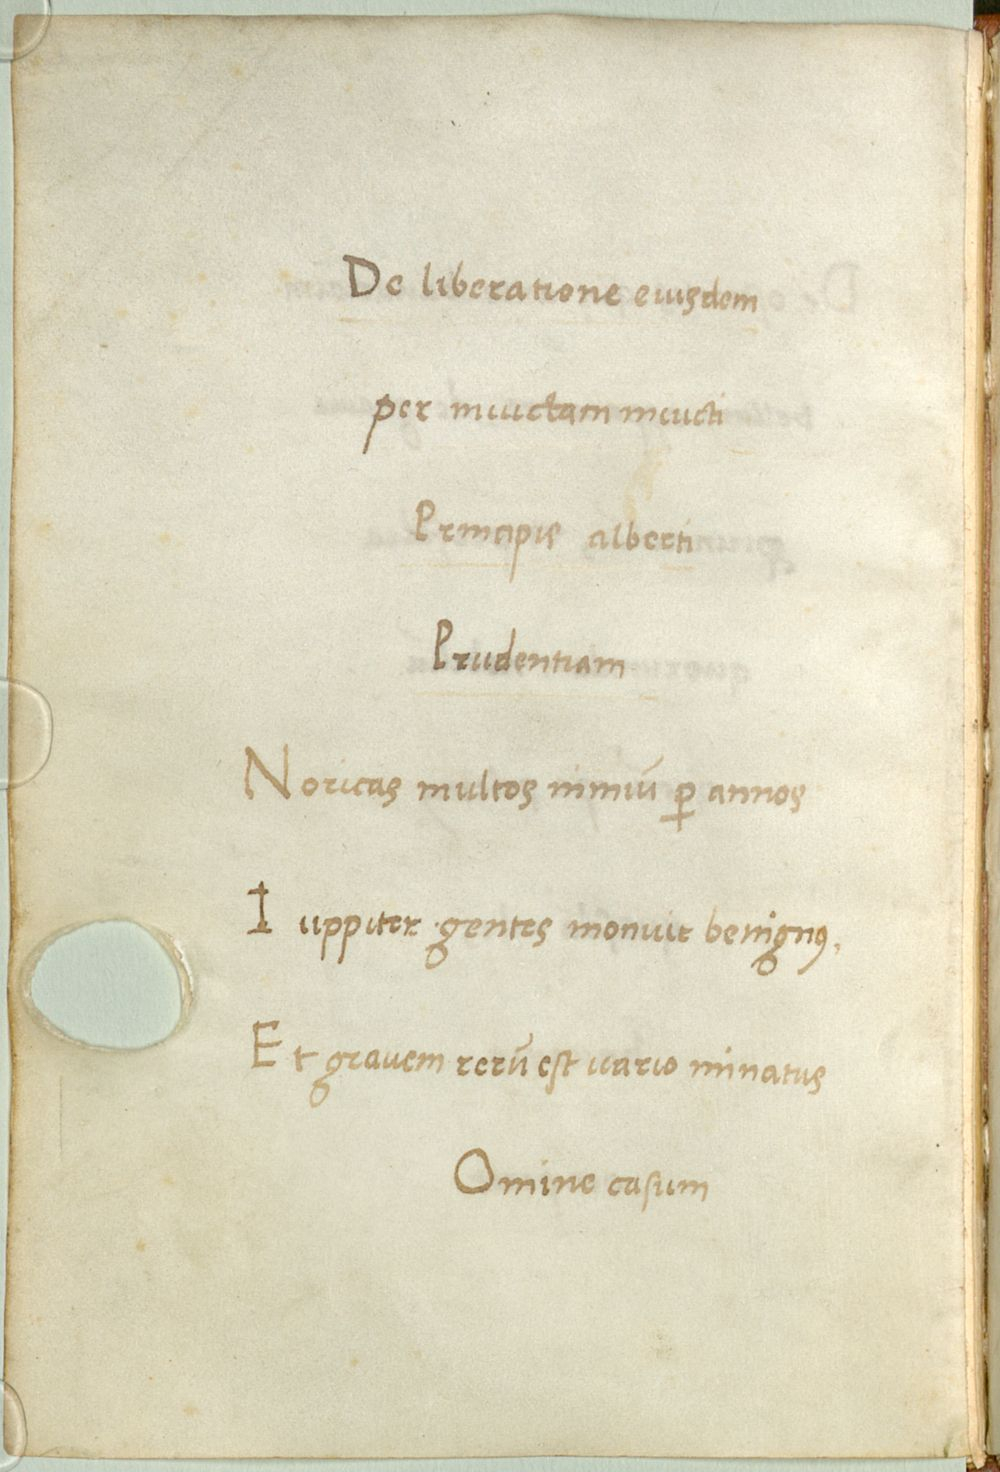 De liberatione eiusdem
per inuictam inuicti
Principis alberti
Prudentiam
Noricas multos nimiū ꝑ annos
Iuppiter gentes monuit benignꝰ,
Et grauem rerū est uario minatus
Omine casum